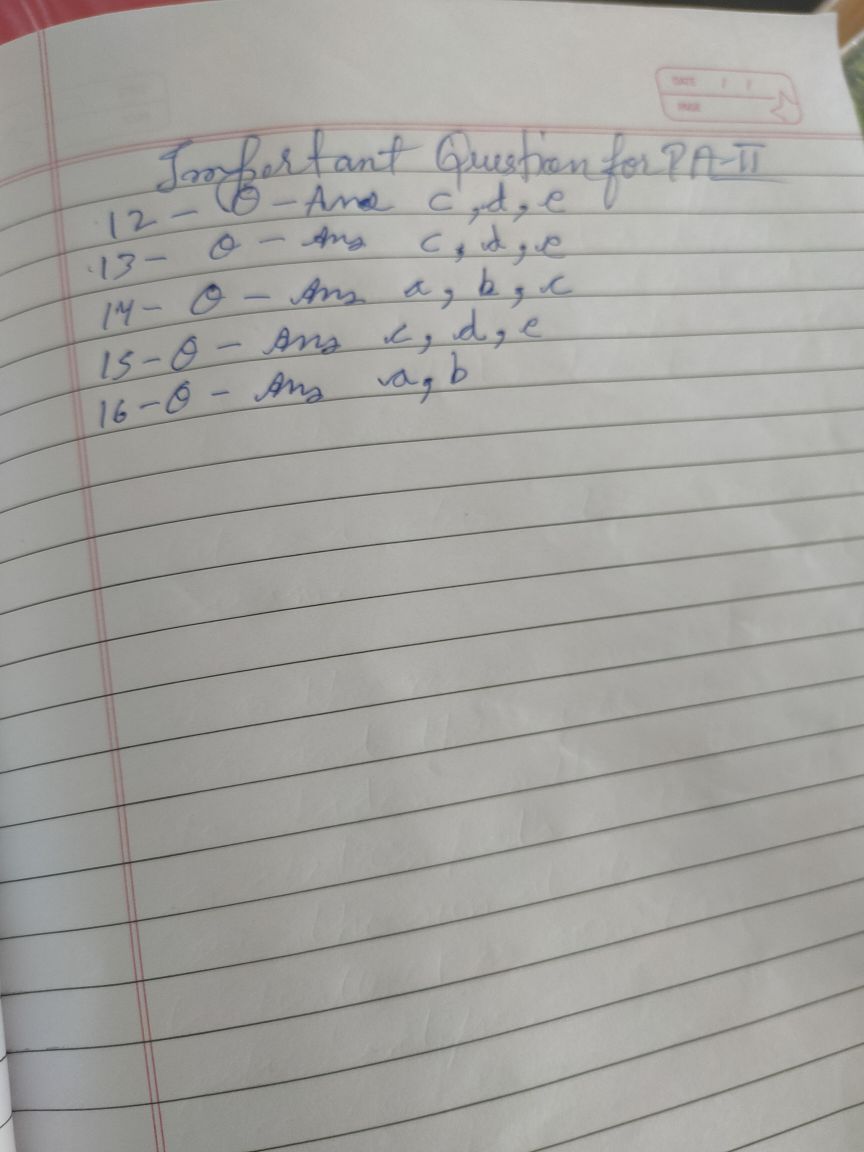 DATE / /
PAGE
Important Question for PA-II
12 - Q - Ans c, d, e
13 - Q - Ans c, d, e
14 - Q - Ans a, b, c
15 - Q - Ans c, d, e
16 - Q - Ans a, b